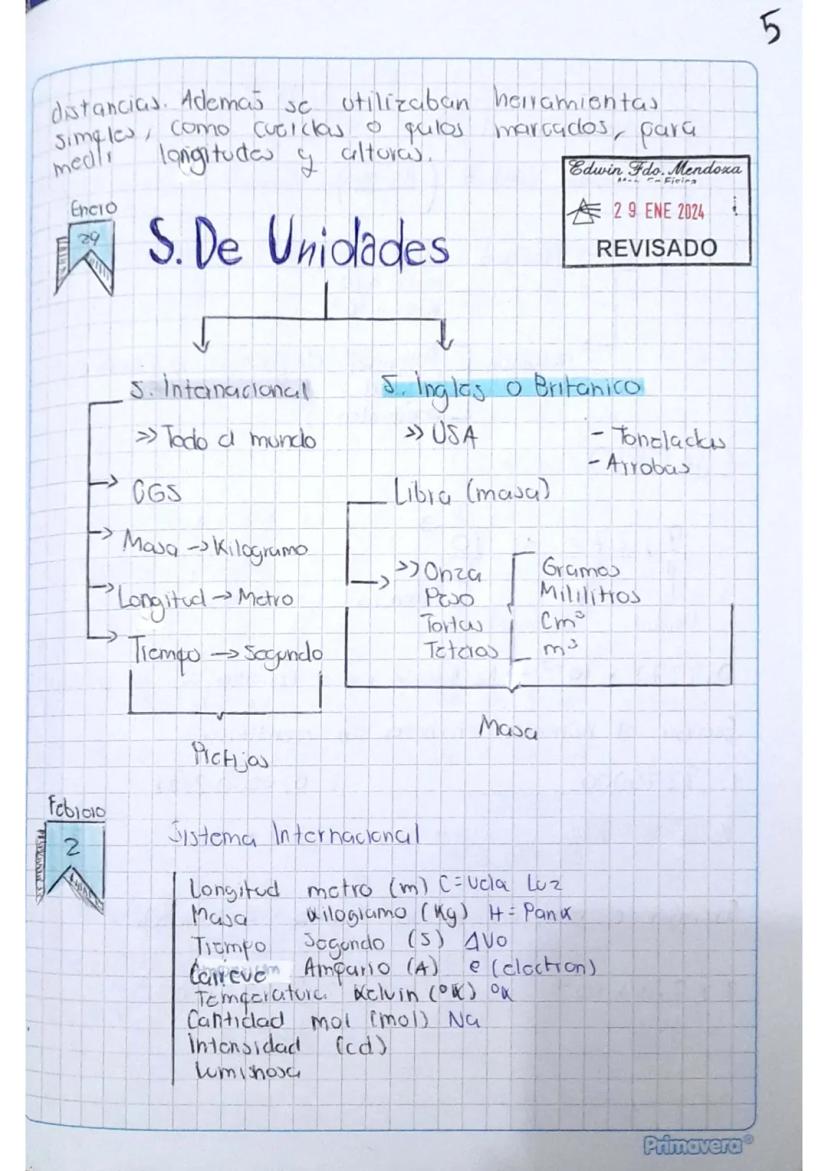 5
distancias. Además se utilizaban herramientas
simples, como cuerdas o palos marcados, para
medir longitudes y alturas.
Edwin Fdo. Mendoza
29 ENE 2024
REVISADO
Enero
29
S. De Unidades
S. Internacional
S. Ingles o Britanico
>> Todo el mundo
>> USA
- Toneladas
- Arrobas
CGS
Libra (masa)
Masa -> Kilogramo
Longitud -> Metro
Tiempo -> Segundo
>> Onza
Peso
Tortas
Teteros
Gramos
Mililitros
Cm³
m³
Prefijos
Masa
Febrero
2
Sistema Internacional
Longitud metro (m) C = Vela Luz
Masa Kilogramo (Kg) H =
Tiempo Segundo (s) ΔVo
Amperio (A) e (electron)
Temperatura Kelvin (°K) °K
Cantidad mol (mol) Na
Intensidad (cd)
luminosa
Primavera